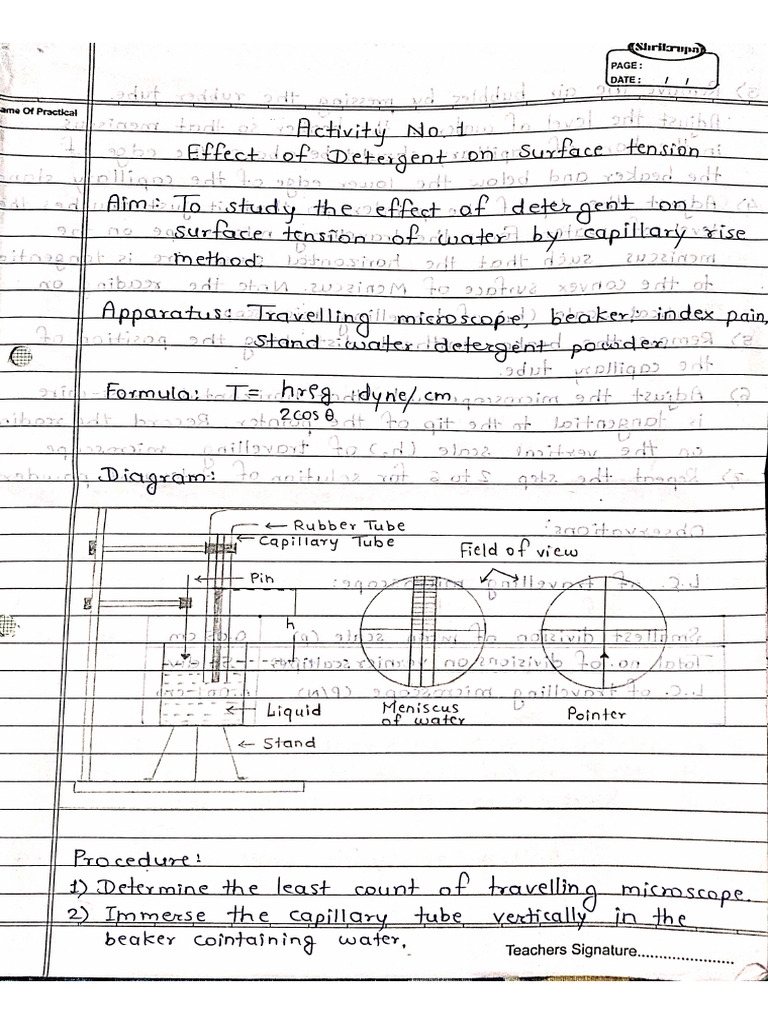 Shrikrupa
PAGE:
DATE: / /
ame Of Practical
Activity No. 1
Effect of Detergent on Surface tension
Aim: To study the effect of detergent on
surface tension of water by capillary rise
method.
Apparatus: Travelling microscope, beaker, index pain,
stand water detergent powder.
Formula: T = hrρg dyne/cm
2cosθ
Diagram:
← Rubber Tube
← Capillary Tube
Field of view
← Pin
h
← Liquid
Meniscus
of water
Pointer
← Stand
Procedure:
1) Determine the least count of travelling microscope.
2) Immerse the capillary tube vertically in the
beaker cointaining water.
Teachers Signature.....................